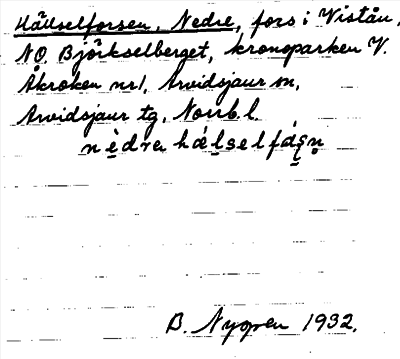 Hällselforsen, Nedre, fors i Vistån,
NO Björkselberget, kronoparken V.
Åkroken nr1, Arvidsjaur sn,
Arvidsjaur tg, Norrb.l.
B. Nygren 1932.